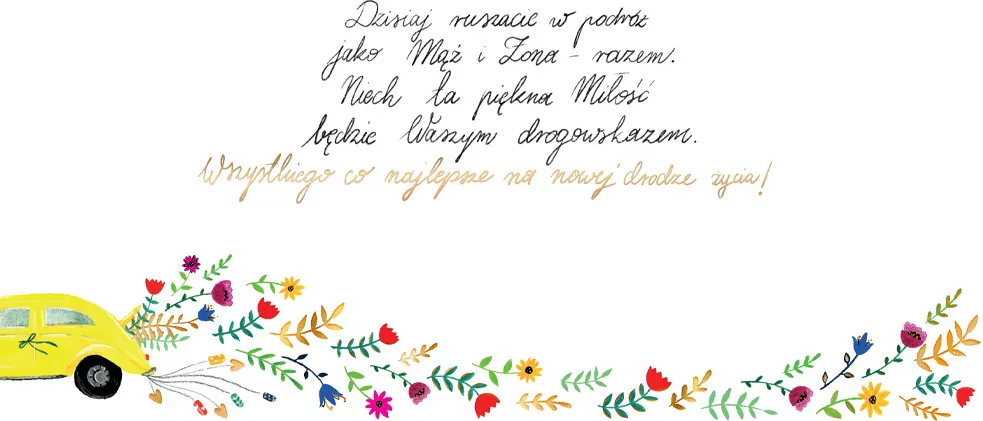 Dzisiaj ruszacie w podróż
jako Mąż i Żona - razem.
Niech ta piękna Miłość
będzie Waszym drogowskazem.
Wszystkiego co najlepsze na nowej drodze życia!